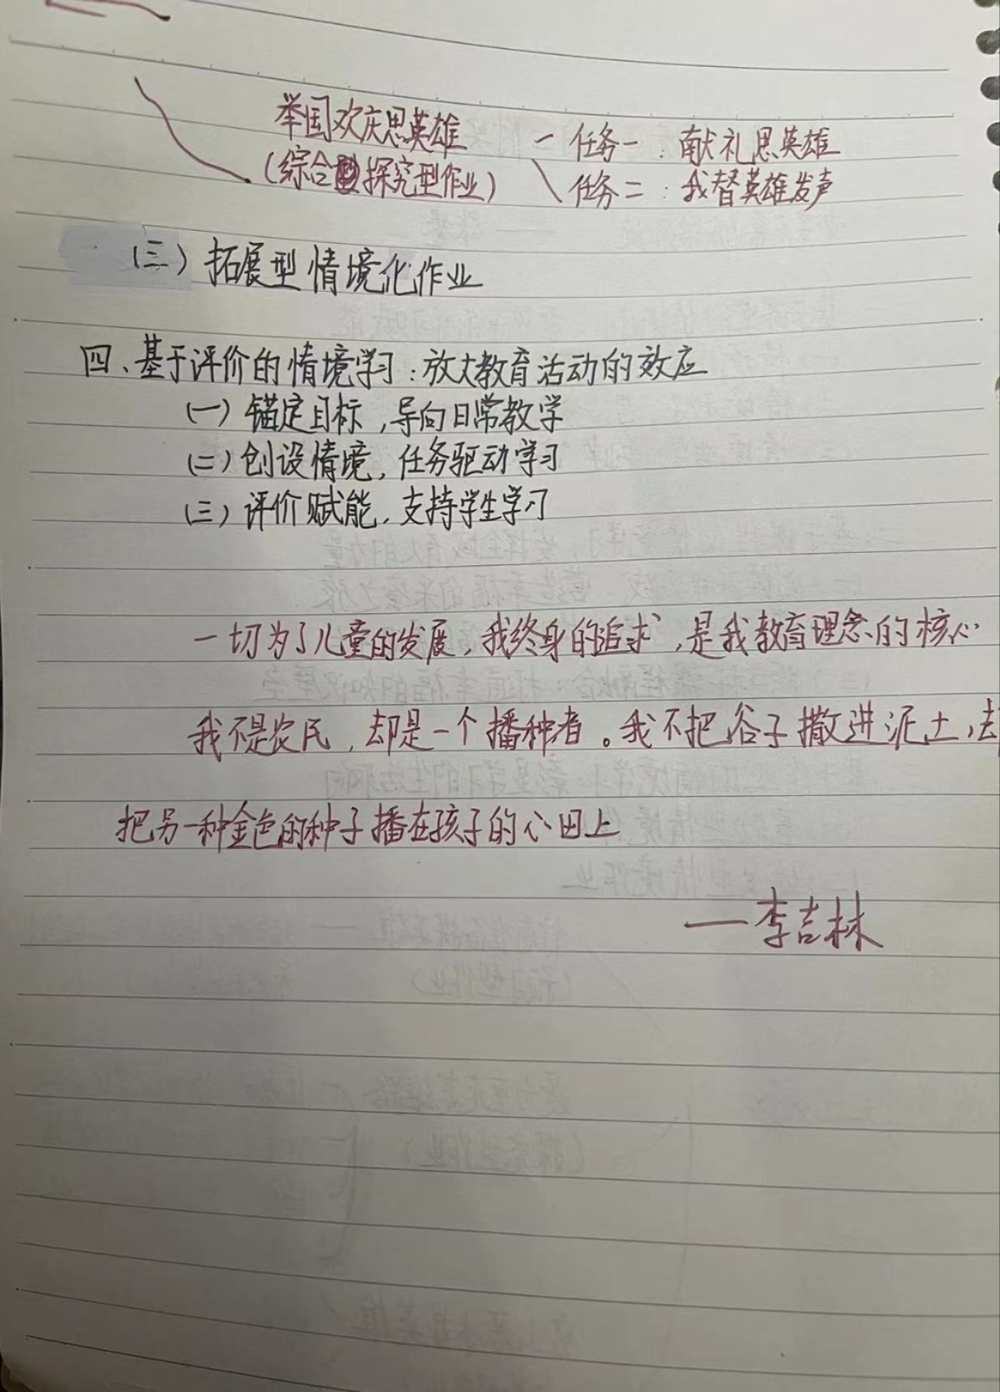 举国欢庆思英雄
(综合探究型作业)
任务一：献礼思英雄
任务二：我替英雄发声
(三)拓展型情境化作业
四、基于评价的情境学习：放大教育活动的效应
(一)锚定目标，导向日常教学
(二)创设情境，任务驱动学习
(三)评价赋能，支持学生学习
一切为了儿童的发展，我终身的追求，是我教育理念的核心
我不是农民，却是一个播种者。我不把谷子撒进泥土，去
把另一种金色的种子播在孩子的心田上
——李吉林